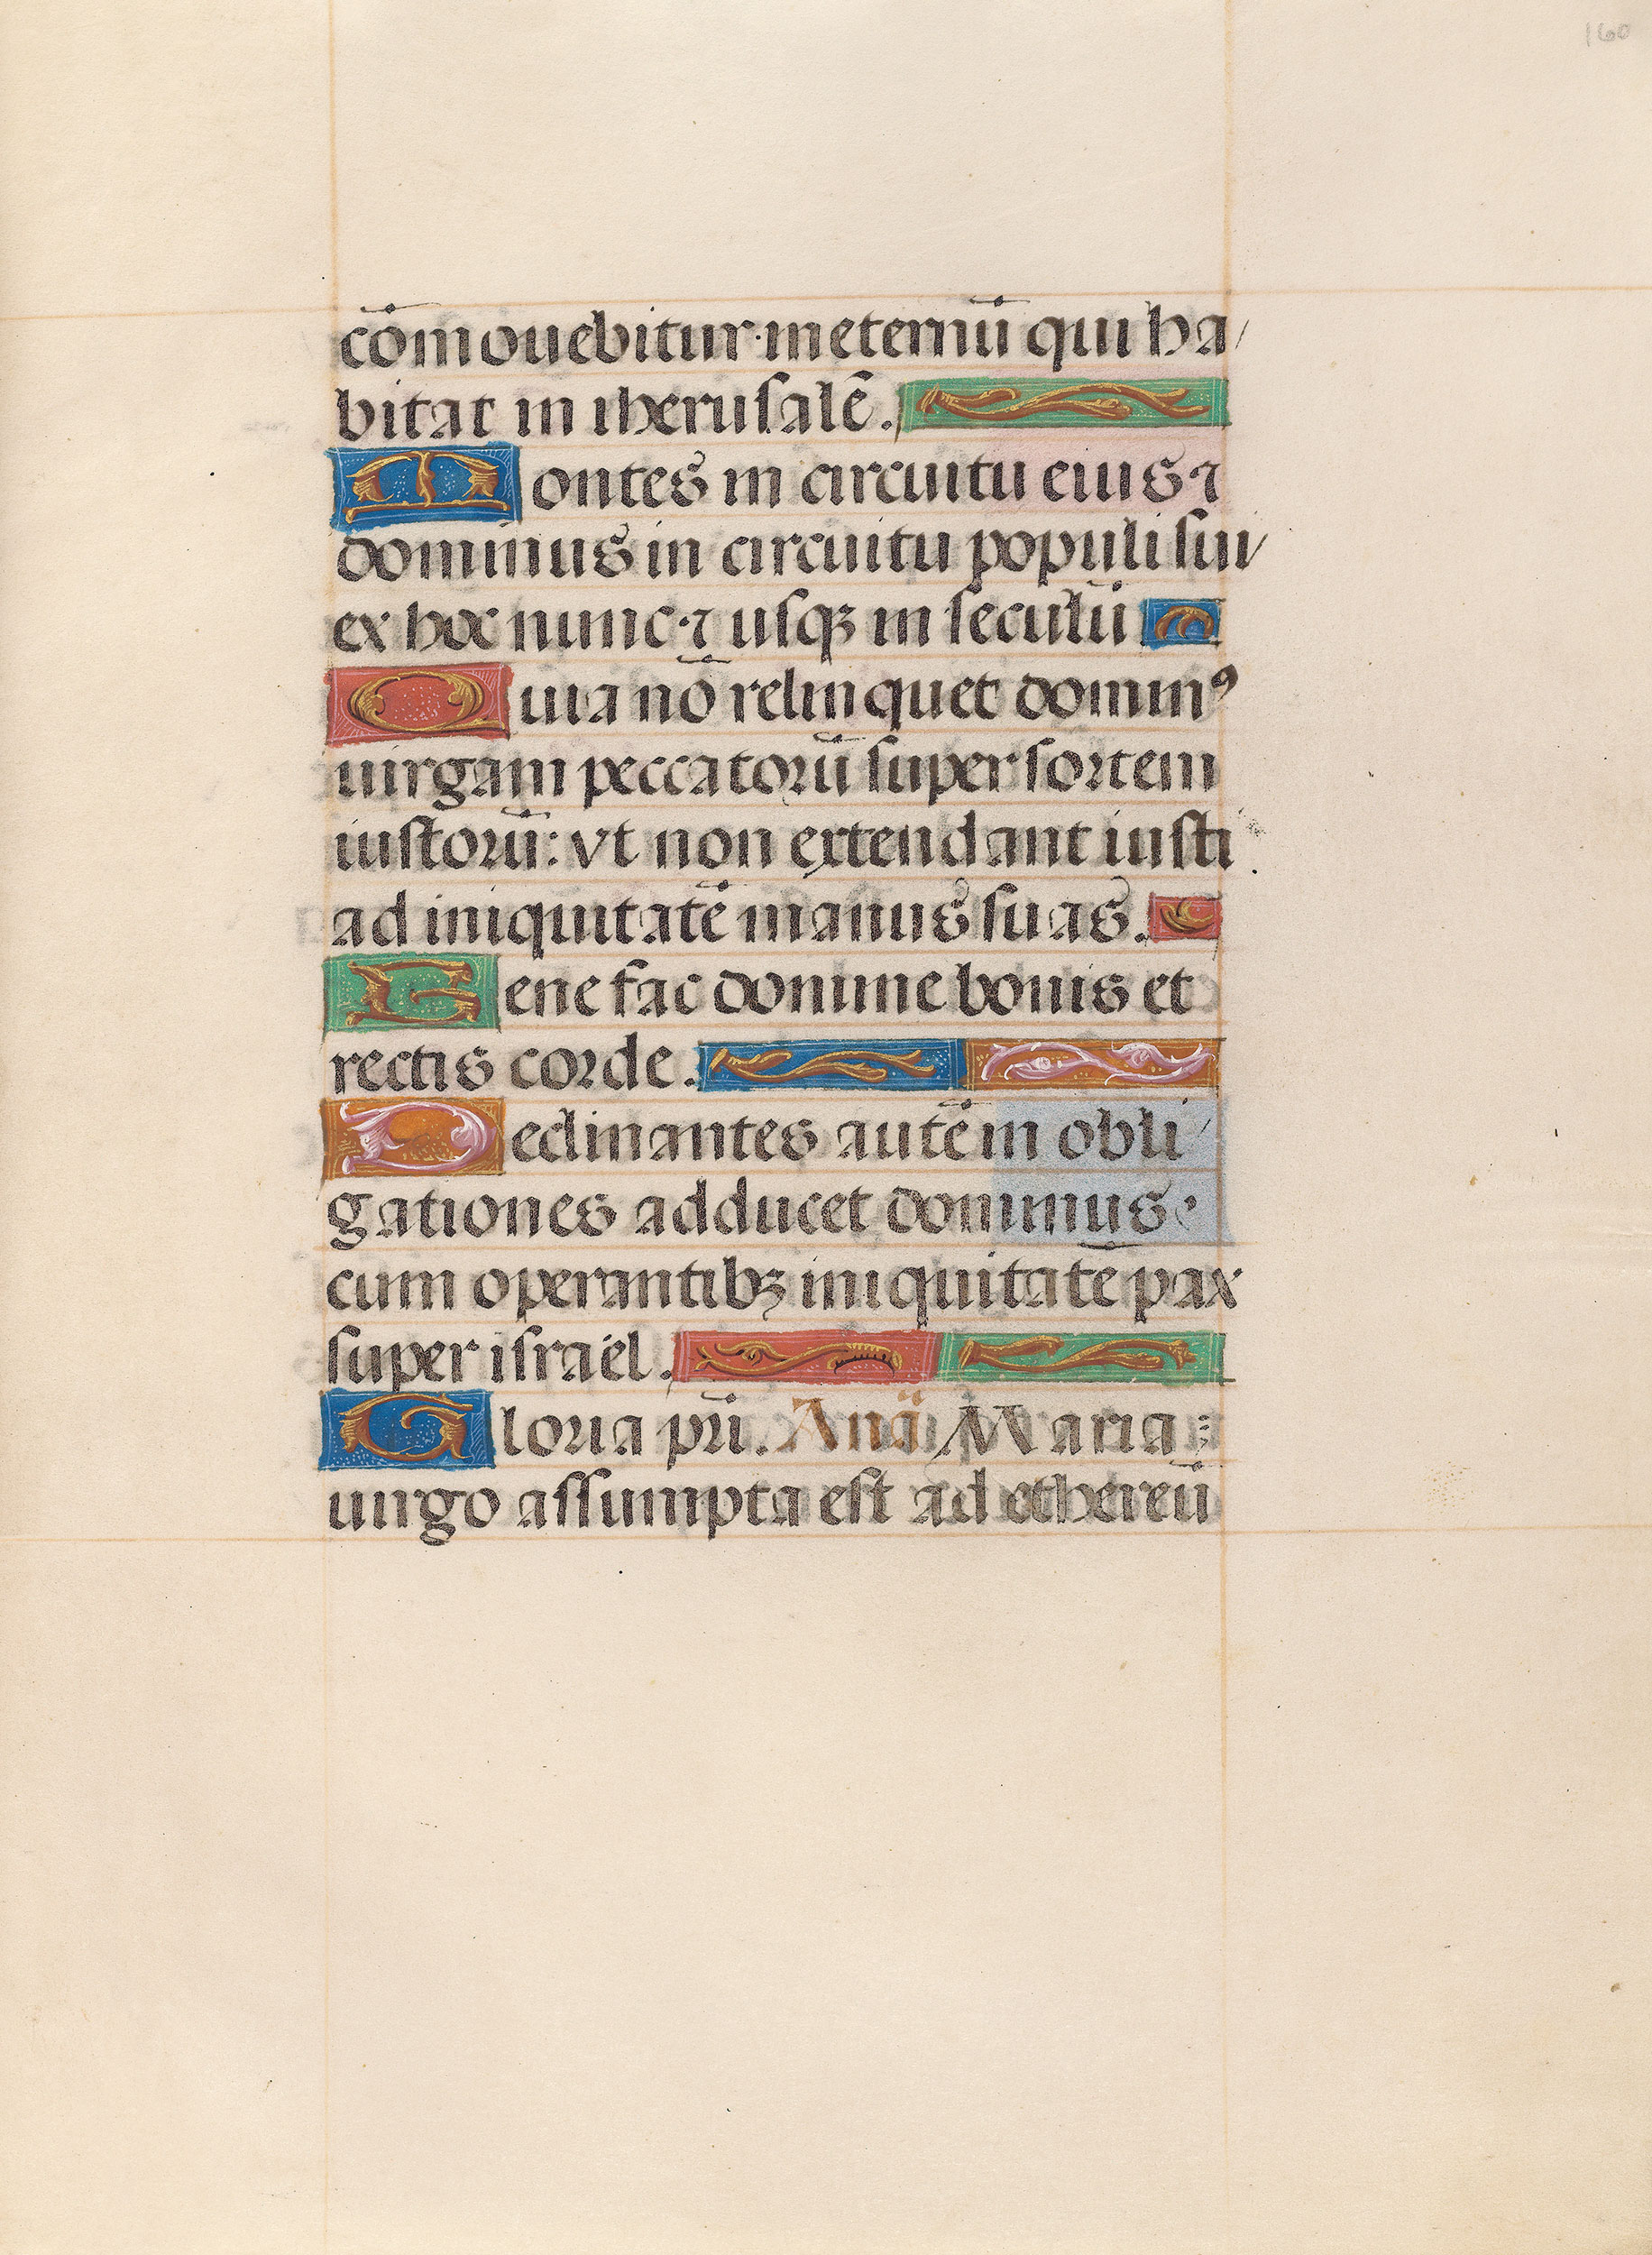 160
cōmouebitur·in eternū qui ha/
bitat in iherusalē.
Montes in circuitu eius ⁊
dominus in circuitu populi sui/
ex hoc nunc·⁊ usqꝫ in seculū
Quia nō relinquet dominꝰ
uirgam peccatorū super sortem
iustorū: vt non extendant iusti
ad iniquitatē manus suas.
Bene fac domine bonis et
rectis corde.
Declinantes autē in obli/
gationes adducet dominus
cum operantibꝫ iniquitatē pax
super israel.
Gloria pri. Anā Maria
uirgo assumpta est ad ethereū